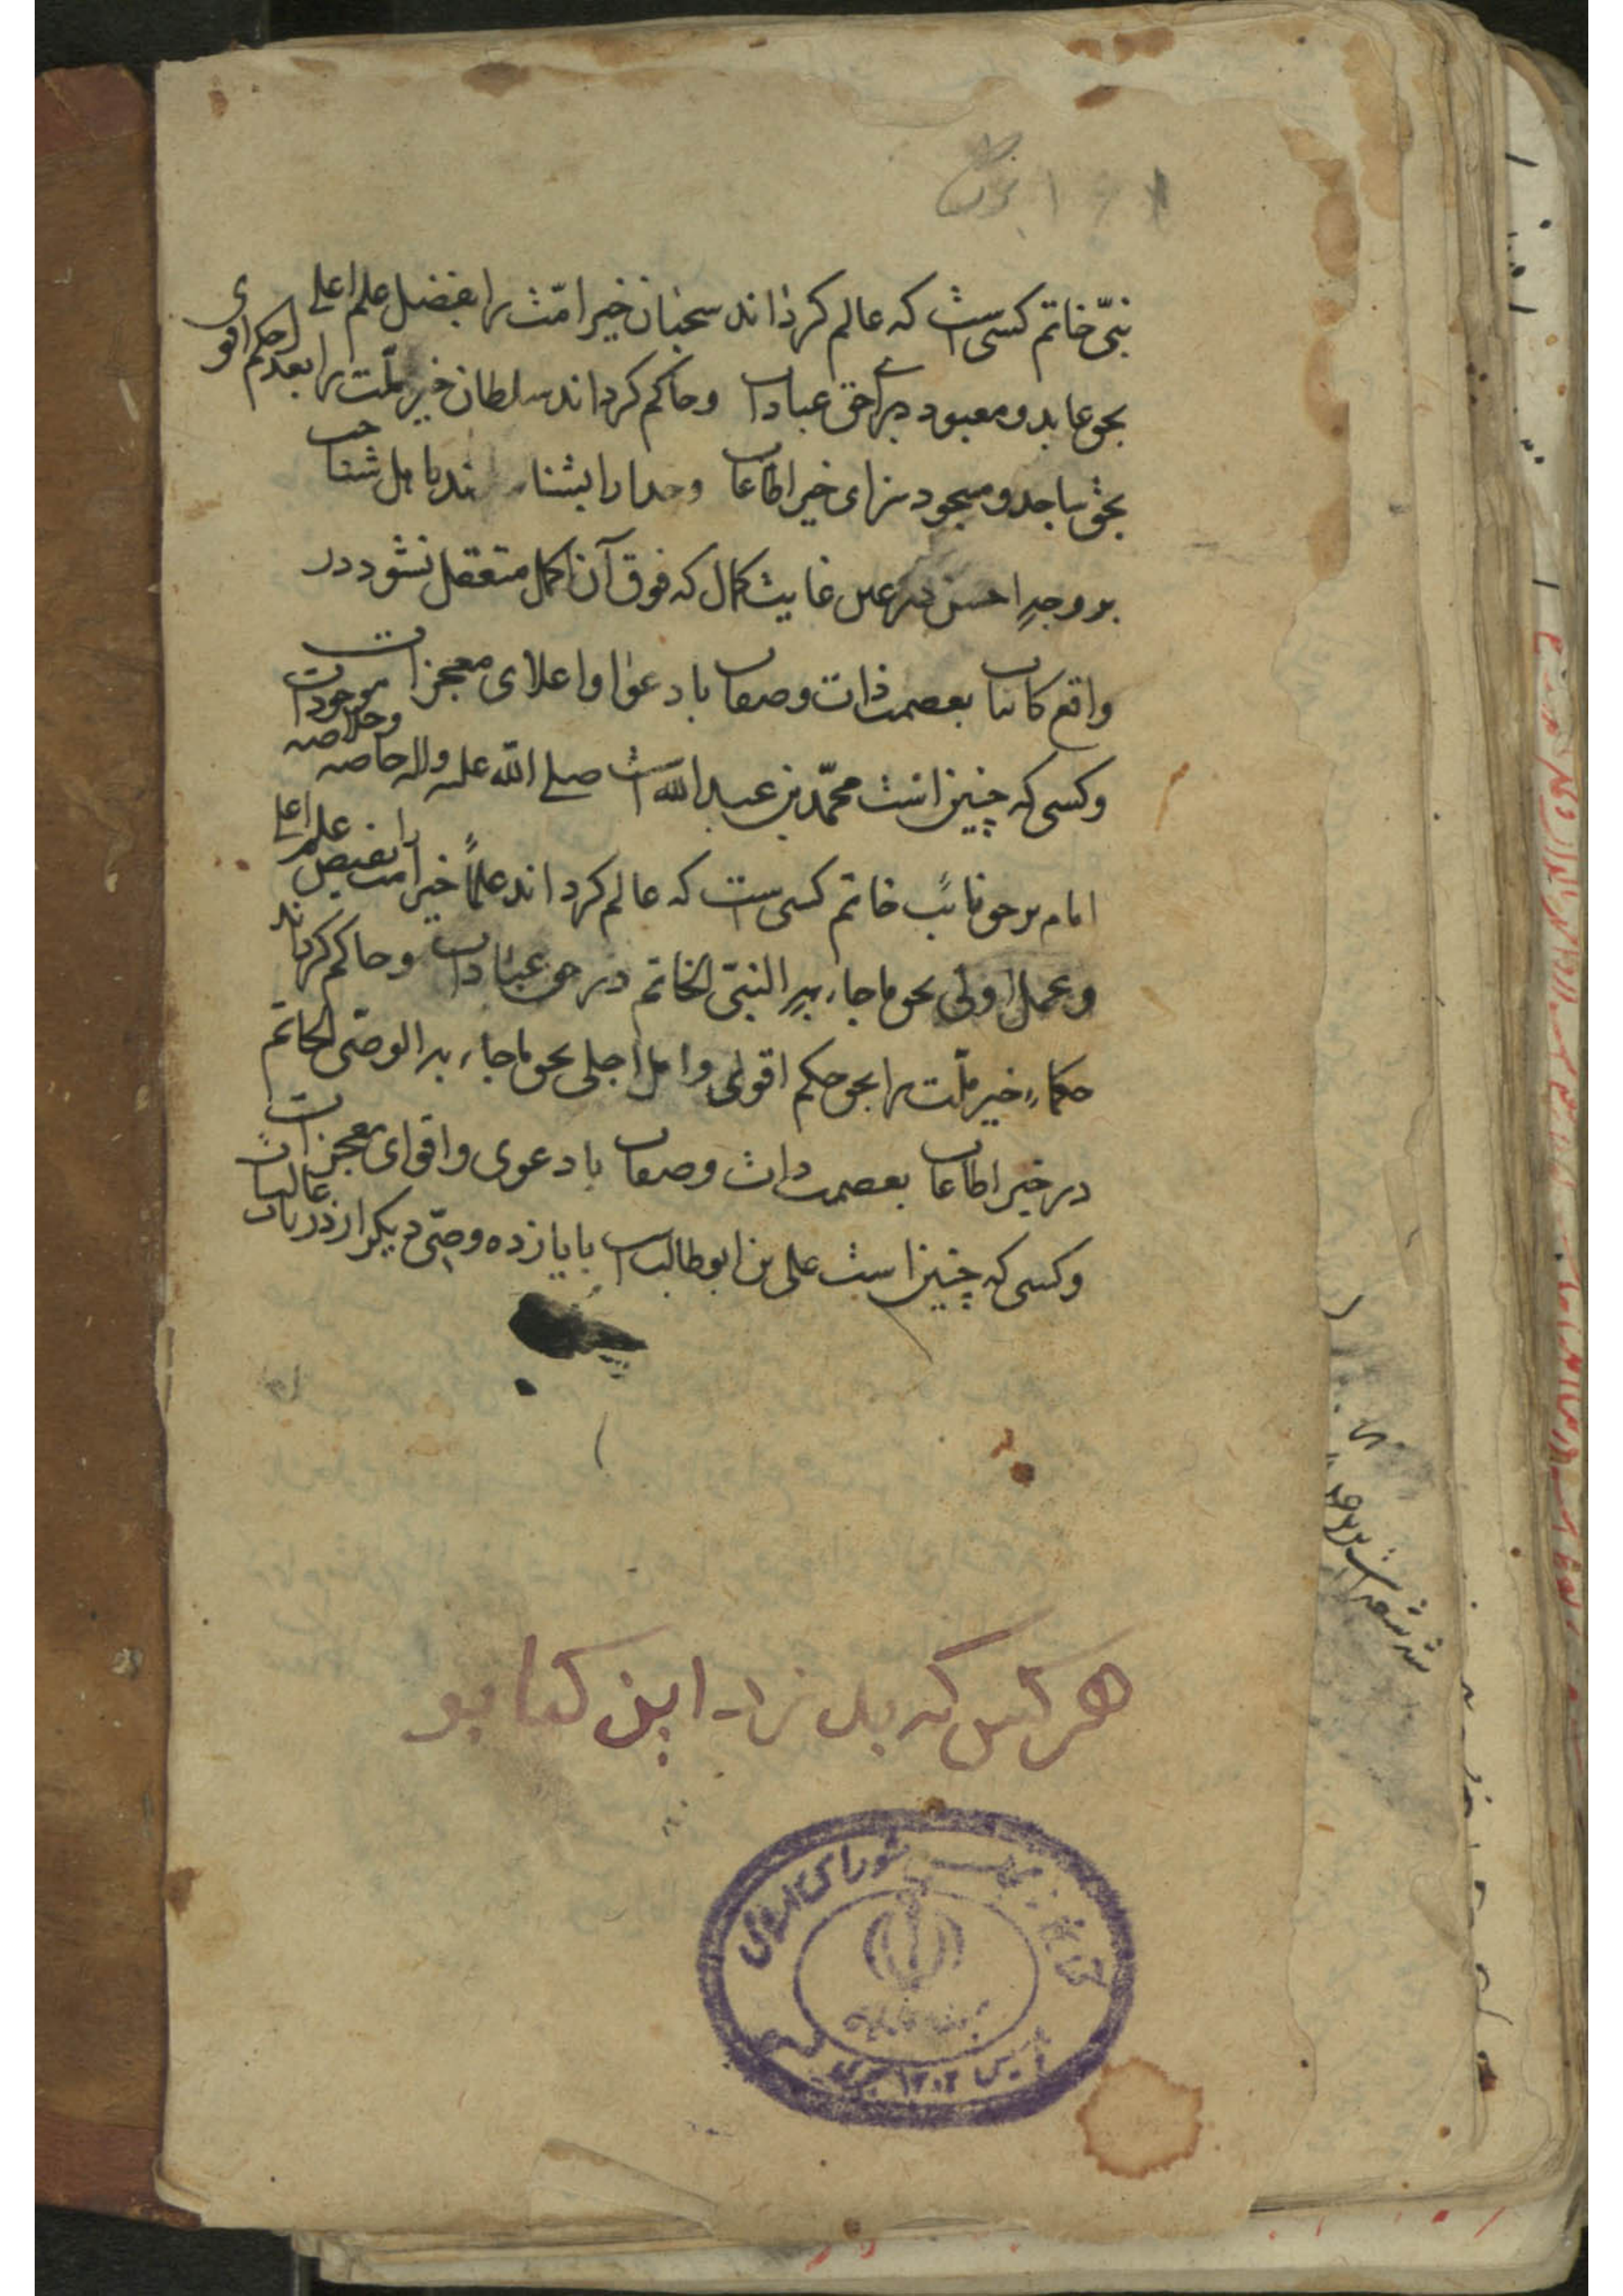 نبیّ خاتم کسی‌ست که عالم کرذاند سحبان خیر امّت را بفضل علم اعلی
بحق عابد و معبود برای حق عبادات وحاکم کرداند سلطان خیر ملّت را بعدل حکم اقوی
بحق ساجد و مسجود سزای خیر اطاعات وخدا را بشناساند باهل شناخت
بر وجهِ احسن در عین غایت کمال که فوق آن اکمل متعقل نشود در
واقع کاینات بعصمت ذات وصفات با دعوا و اعلای معجزات
وکسی که چنین است محمّد بن عبدالله است صلی الله علیه واله خاصه وخلاصه موجودات
امام بر حق نائب خاتم کسی‌ست که عالم کرداند علمآءِ خیر امت را بفیض علم اعلی
وعمل اولی بحق ما جاء بهِ النبیّ الخاتم در حق عبادات وحاکم کرداند
حکماءِ خیر ملّت را بحق حکم اقوی و امل اجلی بحق ما جاء به الوصیّ الخاتم
در خیر اطاعات بعصمت ذات وصفات با دعوی واقوای معجزات
وکسی که چنین است علی بن ابوطالب است با یازده وصیّ دیکر از ذریات غالبات
هر کس که بدزد این کتاب
شورای اسلامی
تأسیس ۱۳۰۲ هجری